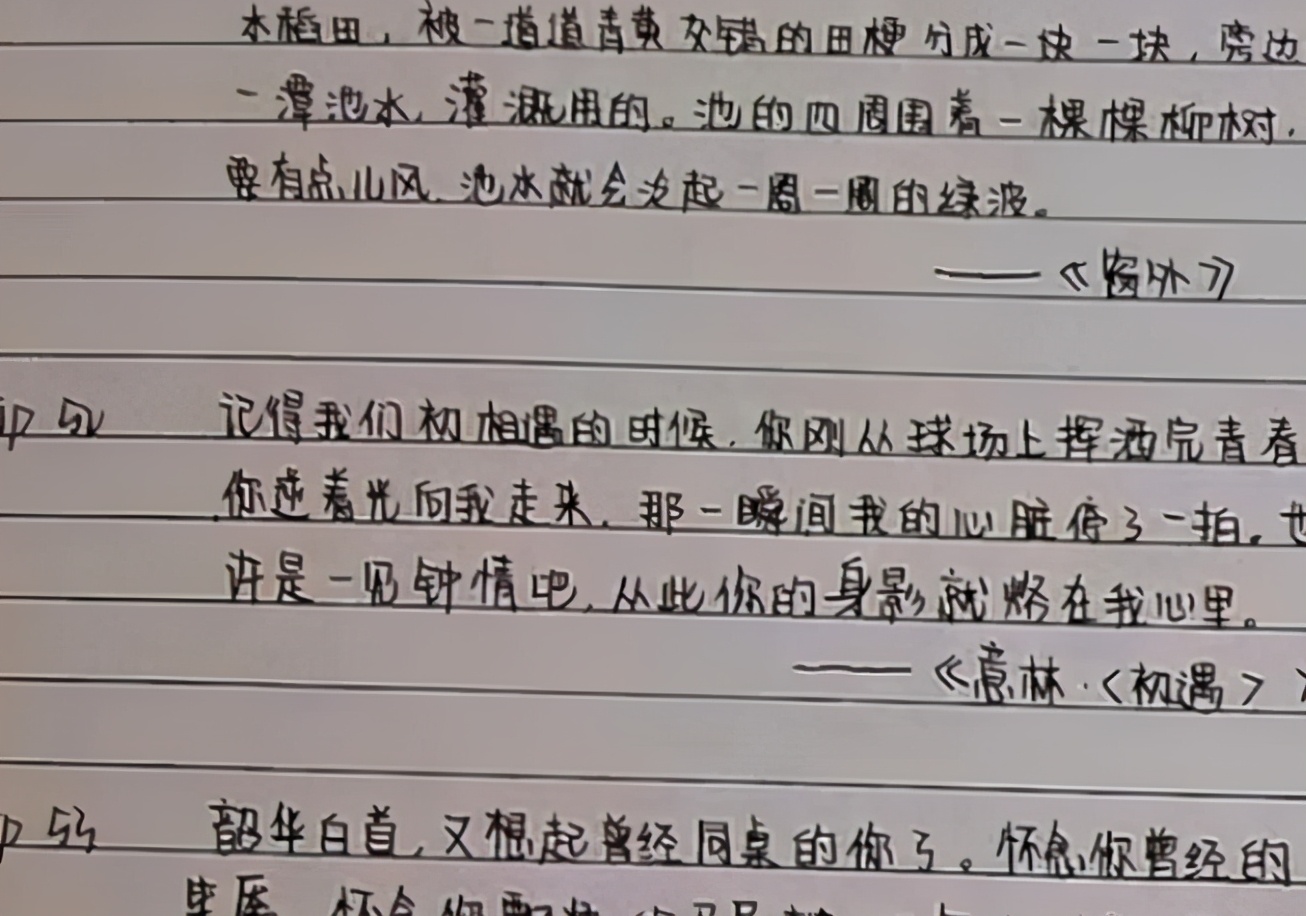 木稻田，被一道道青黄交错的田梗分成一块一块，旁边
一潭池水，灌溉用的。池的四周围着一棵棵柳树，
要有点儿风，池水就会泛起一圈一圈的绿波。
——《窗外》
p 52 记得我们初相遇的时候，你刚从球场上挥洒完青春
你逆着光向我走来，那一瞬间我的心脏停了一拍。也
许是一见钟情吧，从此你的身影就烙在我心里。
——《意林·〈初遇〉
p 53 韶华白首，又想起曾经同桌的你了。怀念你曾经的